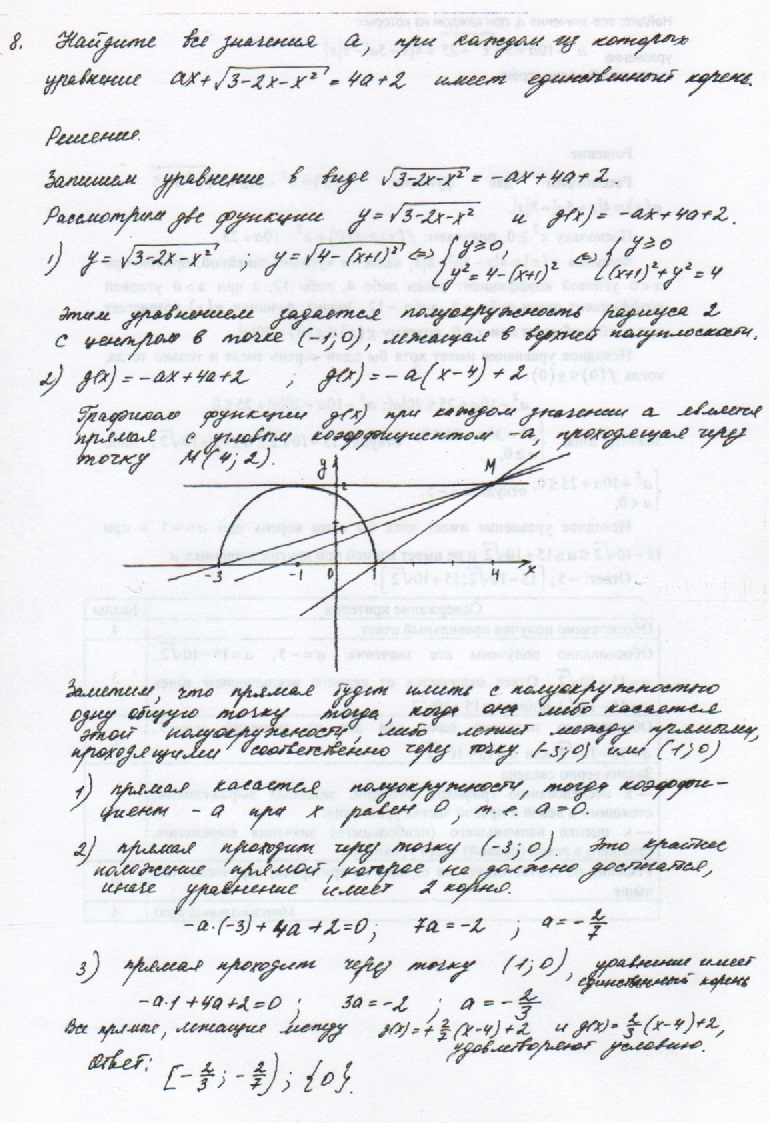 8. Найдите все значения a, при каждом из которых
уравнение ax+√(3-2x-x²) = 4a+2 имеет единственный корень.
Решение.
Запишем уравнение в виде √(3-2x-x²) = -ax+4a+2.
Рассмотрим две функции y=√(3-2x-x²) и g(x) = -ax+4a+2.
1) y=√(3-2x-x²) ; y=√(4-(x+1)²) ⇔ {y≥0 y²=4-(x+1)² ⇔ {y≥0 (x+1)²+y²=4
Этим уравнением задается полуокружность радиуса 2
с центром в точке (-1;0), лежащая в верхней полуплоскости.
2) g(x) = -ax+4a+2 ; g(x) = -a(x-4)+2
Графиком функции g(x) при каждом значении a является
прямая с угловым коэффициентом -a, проходящая через
точку M(4;2).
y M
2
1
-3 -1 0 1 4 x
Заметим, что прямая будет иметь с полуокружностью
одну общую точку тогда, когда она либо касается
этой полуокружности, либо лежит между прямыми,
проходящими соответственно через точку (-3;0) или (1;0)
1) прямая касается полуокружности, тогда коэффи-
циент -a при x равен 0, т.е. a=0.
2) прямая проходит через точку (-3;0) это крайнее
положение прямой, которое не должно достигатся,
иначе уравнение имеет 2 корня.
-a·(-3)+4a+2=0; 7a=-2 ; a=-2/7
3) прямая проходит через точку (1;0), уравнение имеет
единственный корень
-a·1+4a+2=0 ; 3a=-2 ; a=-2/3
Все прямые, лежащие между g(x)=+2/7(x-4)+2 и g(x)=2/3(x-4)+2,
удовлетворяют условию.
Ответ: [-2/3; -2/7); {0}.